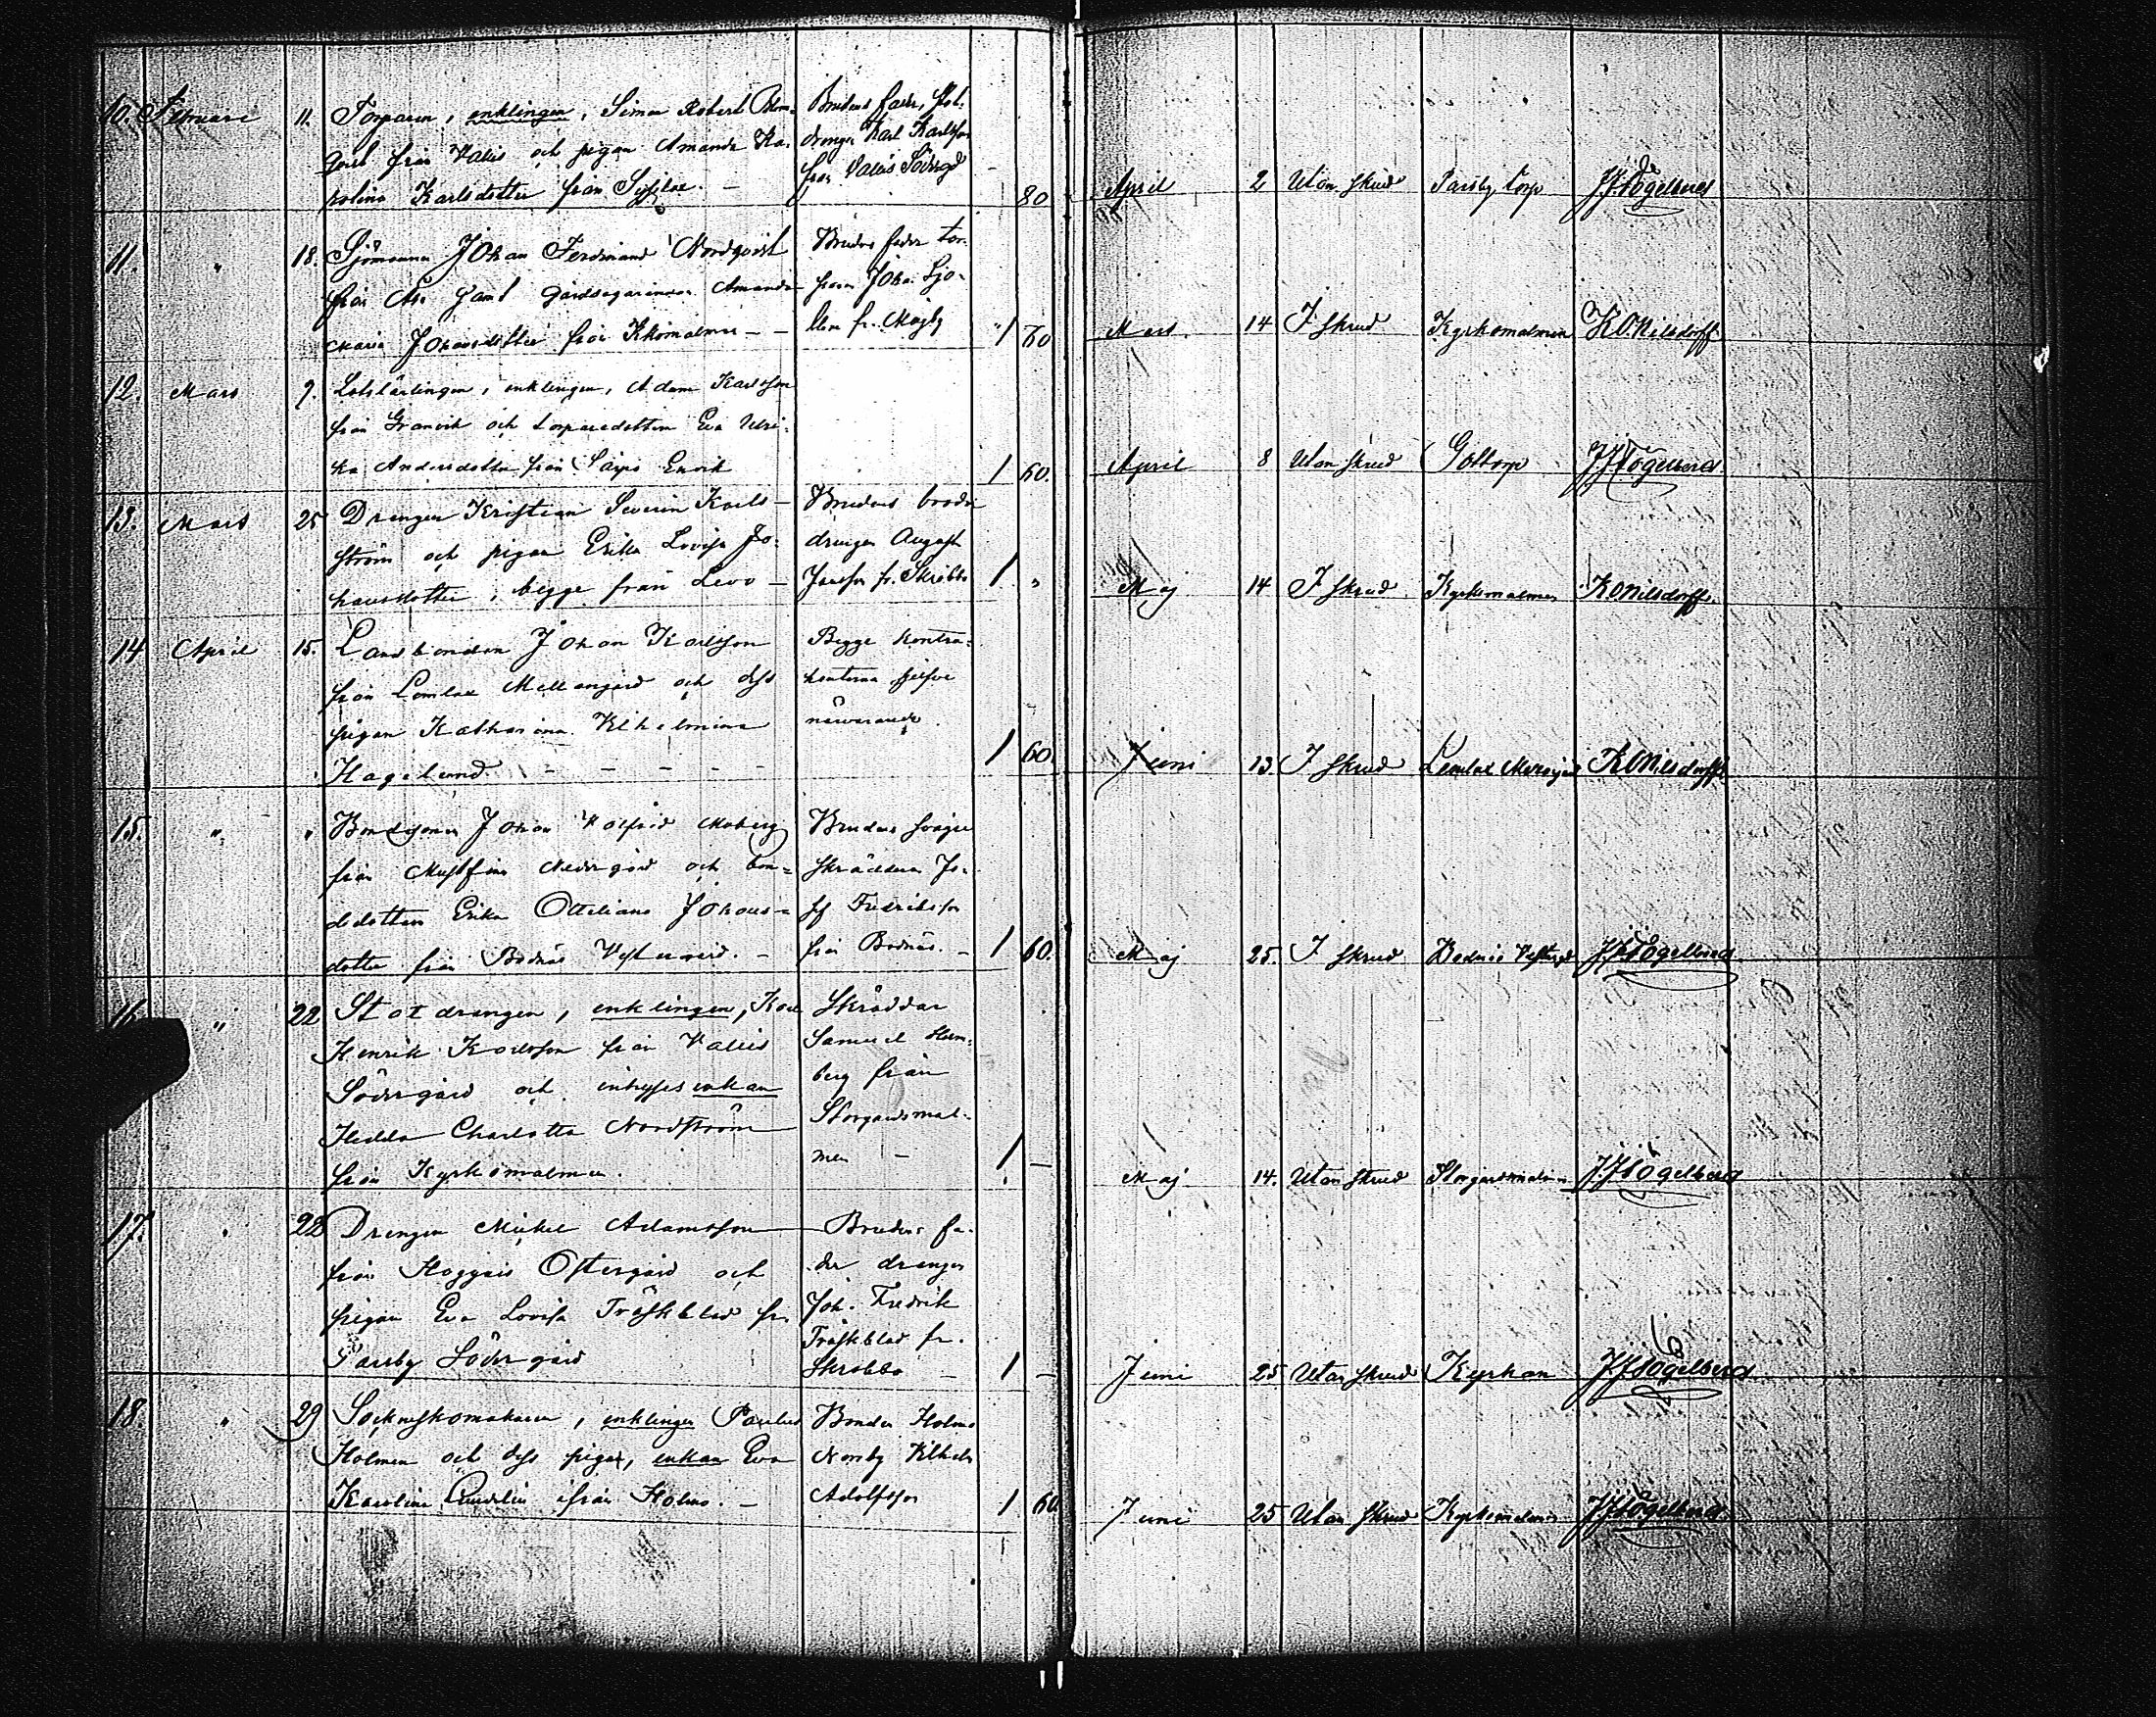 10. Februari 11. Torparen, enklingen, Simon Robert Blom-
qvist från Vallis och pigan Amanda Ka-
rolina Karlsdotter från Sysilax. –
Brudens fader, stat-
drengen Karl Karlsson
från Vallis Södergd
80
April 2 Utan skrud Parsby torp JJFogelberg
11. " 18. Sjömannen Johan Ferdinand Nordqvist
från samt gårdsegarinnan Amanda
Maria Johansdotter från Kkomalmen – –
Brudens fader tor-
paren Johan Sjö-
fr.
1 70
Mars 14 I skrud Kyrkomalmen KONilsdorff
12. Mars 9. Lotslärlingen, enklingen, Adam Karlsson
från Granvik och torparedottern Eva Ulri-
ka Andersdotter från
1 60.
April 8 Utan skrud Goltorp JJFogelberg
13. Mars 25 Drengen Kristian Severin Karls-
ström och pigan Erika Lovisa Jo-
hansdotter, begge från Levo –
Brudens broder
drengen August
Jansson fr. Skräbbo
1 "
Maj 14 I skrud Kyrkomalmen KONilsdorff
14 April 15. Landbonden Johan Karlsson
från Lemlax Mellangård och dess
pigan Katharina Vilhelmina
Hagelund. – – – – –
Begge kontra-
henterna sjelfve
närvarande.
1 60.
Juni 13 I skrud Lemlax KONilsdorff
15. " " Bondsonen Johan Valfrid Moberg
från Mustfinn Nedergård och bon-
dedottern Erika Otteliana Johans-
dotter från Bodnäs Vestergård. –
Brudens svåger
skräddaren Jo-
sef Fredriksson
från Bodnäs. –
1 60.
Maj 25. I skrud Bodnäs Vestergd JJFogelberg
16. " 22 Statdrengen, enklingen, Karl
Henrik Karlsson från Vallis
Södergård och inhyses enkan
Hedda Charlotta Nordström
från Kyrkomalmen.
Skräddar
Samuel
berg från
Storgårdsmal-
men –
1 –
Maj 14. Utan skrud Storgårdsmalmen JJFogelberg
17. " 22 Drengen Mickel Adamsson
från Koggais Östergård och
pigan Eva Lovisa Träskblad fr.
Parsby Södergård
Brudens fa-
der drengen
Joh. Fredrik
Träskblad fr.
Skräbbo –
1 –
Juni 25 Utan skrud Kyrkan JJFogelberg
18. " 29 Sockneskomakaren, enklingen Paulus
Holmén och dess piga, enkan Eva
Karolina Lundelin ifrån Holmo. –
Bonden Holmo
Norrby Vilhelm
Adolfsson
1 60
Juni 25 Utan skrud Kyrkomalmen JJFogelberg